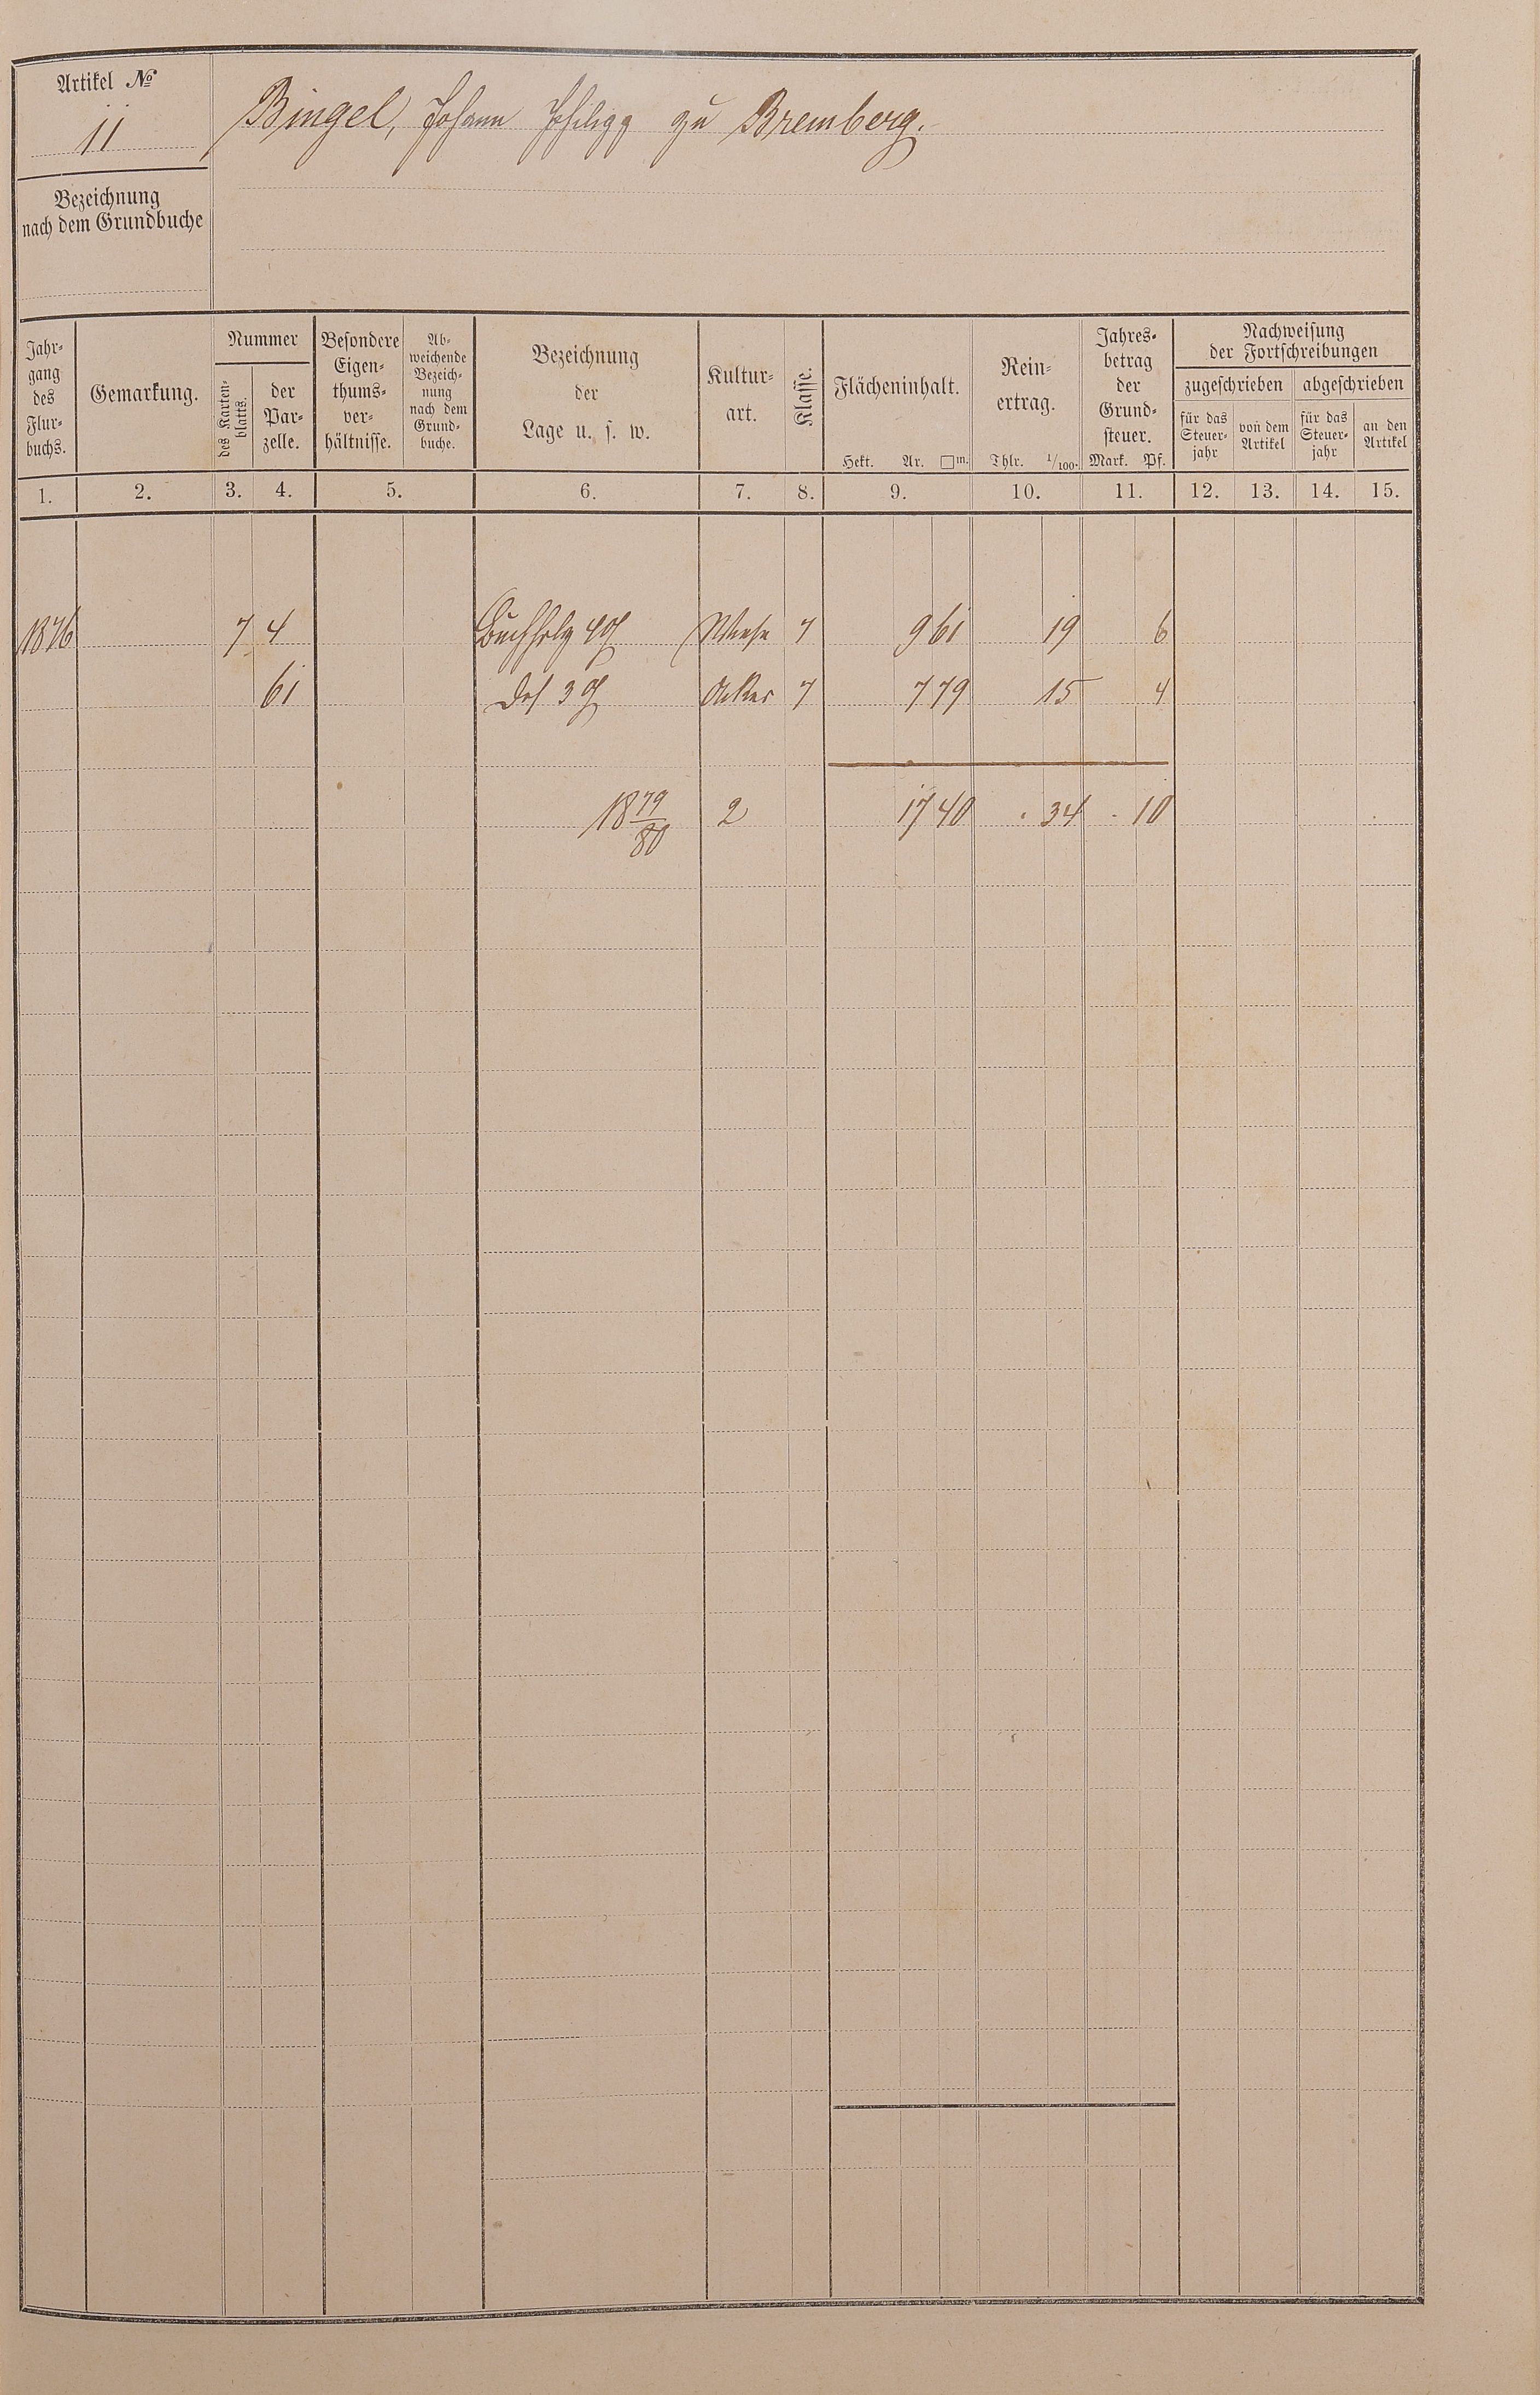 Artikel №
11
Bingel, Johann Philipp zu Bremberg.
Bezeichnung
nach dem Grundbuche
Jahr-
gang
des
Flur-
buchs.
Gemarkung.
Nummer
des Karten-
blatts.
der
Par-
zelle.
Besondere
Eigen-
thums-
ver-
hältnisse.
Ab-
weichende
Bezeich-
nung
nach dem
Grund-
buche.
Bezeichnung
der
Lage u. s. w.
Kultur-
art.
Klasse.
Flächeninhalt.
Hekt. Ar. □m.
Rein-
ertrag.
Thlr. 1/100.
Jahres-
betrag
der
Grund-
steuer.
Mark. Pf.
Nachweisung
der Fortschreibungen
zugeschrieben
abgeschrieben
für das
Steuer-
jahr
von dem
Artikel
für das
Steuer-
jahr
an den
Artikel
1. 2. 3. 4. 5. 6. 7. 8. 9. 10. 11. 12. 13. 14. 15.
1876 7 4 Buchholz Wiese 7 9 61 19 6
61 3 Acker 7 7 79 15 4
1879/80 2 17 40 . 34 . 10